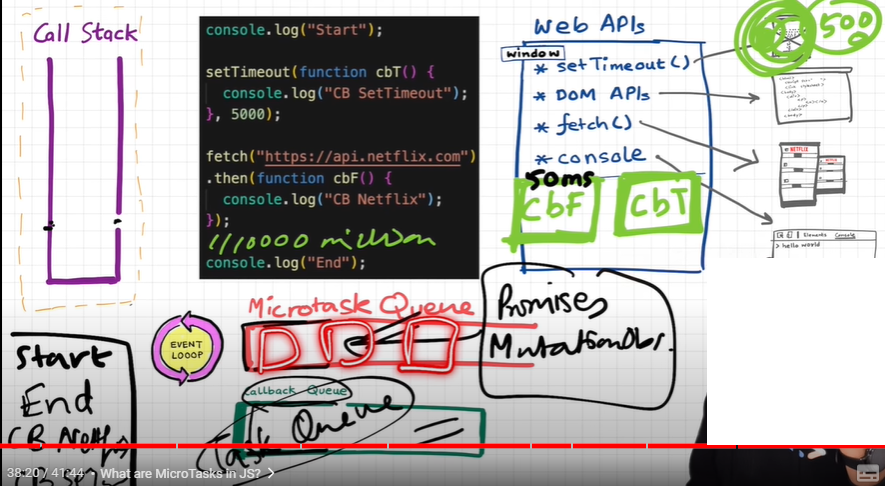 Call Stack
console.log("Start");
setTimeout(function cbT() {
console.log("CB SetTimeout");
}, 5000);
fetch("https://api.netflix.com")
.then(function cbF() {
console.log("CB Netflix");
});
10000 million
console.log("End");
Web APIs
window
* setTimeout()
* DOM APIs
* fetch()
* console
50ms
CbF
CbT
500
NETFLIX
Elements Console
> hello world
Microtask Queue
Promises
MutationObs.
EVENT
LOOOP
Callback Queue
Task Queue
Start
End
CB
38:20 / 41:44 • What are MicroTasks in JS? >